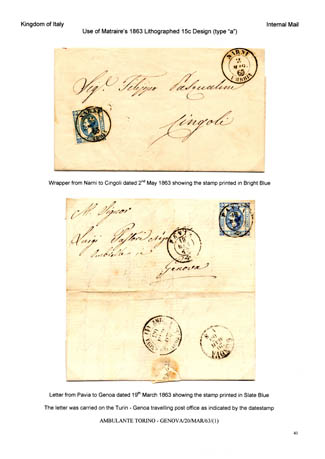 Kingdom of Italy
Internal Mail
Use of Matraire's 1863 Lithographed 15c Design (type "a")
NARNI
2
MAG
63
UMBRIA
Sig. Filippo Pasqualini
Cingoli
Wrapper from Narni to Cingoli dated 2nd May 1863 showing the stamp printed in Bright Blue
Al Signor
Luigi
Genova
GENOVA
Letter from Pavia to Genoa dated 19th March 1863 showing the stamp printed in Slate Blue
The letter was carried on the Turin - Genoa travelling post office as indicated by the datestamp
AMBULANTE TORINO - GENOVA/20/MAR/63/(1)